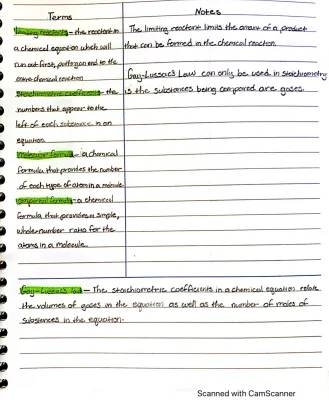 Terms
Notes
Limiting reactants - the reactant in
a chemical equation which will
run out first, putting an end to the
entire chemical reaction
Stoichiometric coefficients - the
numbers that appear to the
left of each substance in an
equation
Molecular formula - a chemical
formula that provides the number
of each type of atom in a molecule
empirical formula - a chemical
formula that provides a simple,
whole number ratio for the
atoms in a molecule.
The limiting reactant limits the amount of a product
that can be formed in the chemical reaction.
Gay-Lussac's Law can only be used in stoichiometry
is the substances being compared are gases.
Gay-Lussac's law - The stoichiometric coefficients in a chemical equation relate
the volumes of gases in the equation as well as the number of moles of
substances in the equation.
Scanned with CamScanner